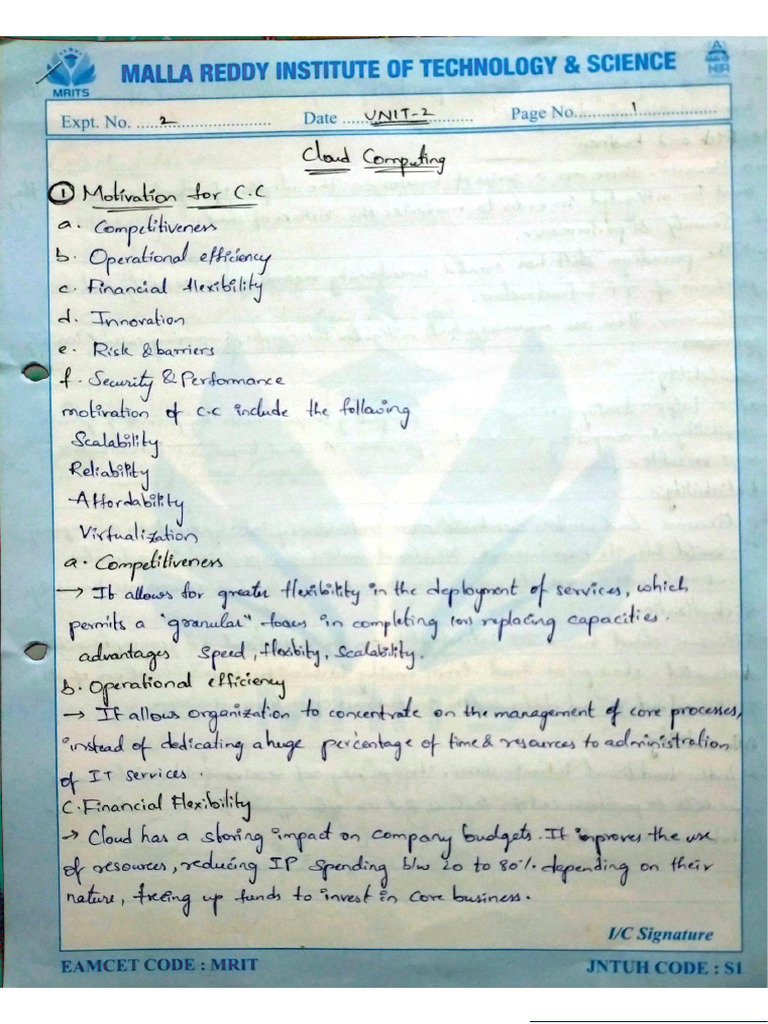 MALLA REDDY INSTITUTE OF TECHNOLOGY & SCIENCE
MRITS
Expt. No. 2 Date UNIT-2 Page No. 1
Cloud Computing
① Motivation for C.C
a. Competitiveness
b. Operational efficiency
c. Financial flexibility
d. Innovation
e. Risk & barriers
f. Security & Performance
motivation of C.C include the following
Scalability
Reliability
Affordability
Virtualization
a. Competitiveness
→ It allows for greater flexibility in the deployment of services, which
permits a "granular" focus in completing (or) replacing capacities.
advantages speed, flexibity, scalability.
b. Operational efficiency
→ It allows organization to concentrate on the management of core processes,
instead of dedicating a huge percentage of time & resources to administration
of IT services.
C. Financial Flexibility
→ Cloud has a storing impact on company budgets. It improves the use
of resources, reducing IP spending b/w 20 to 80% depending on their
nature, freeing up funds to invest in core business.
I/C Signature
EAMCET CODE : MRIT JNTUH CODE : S1